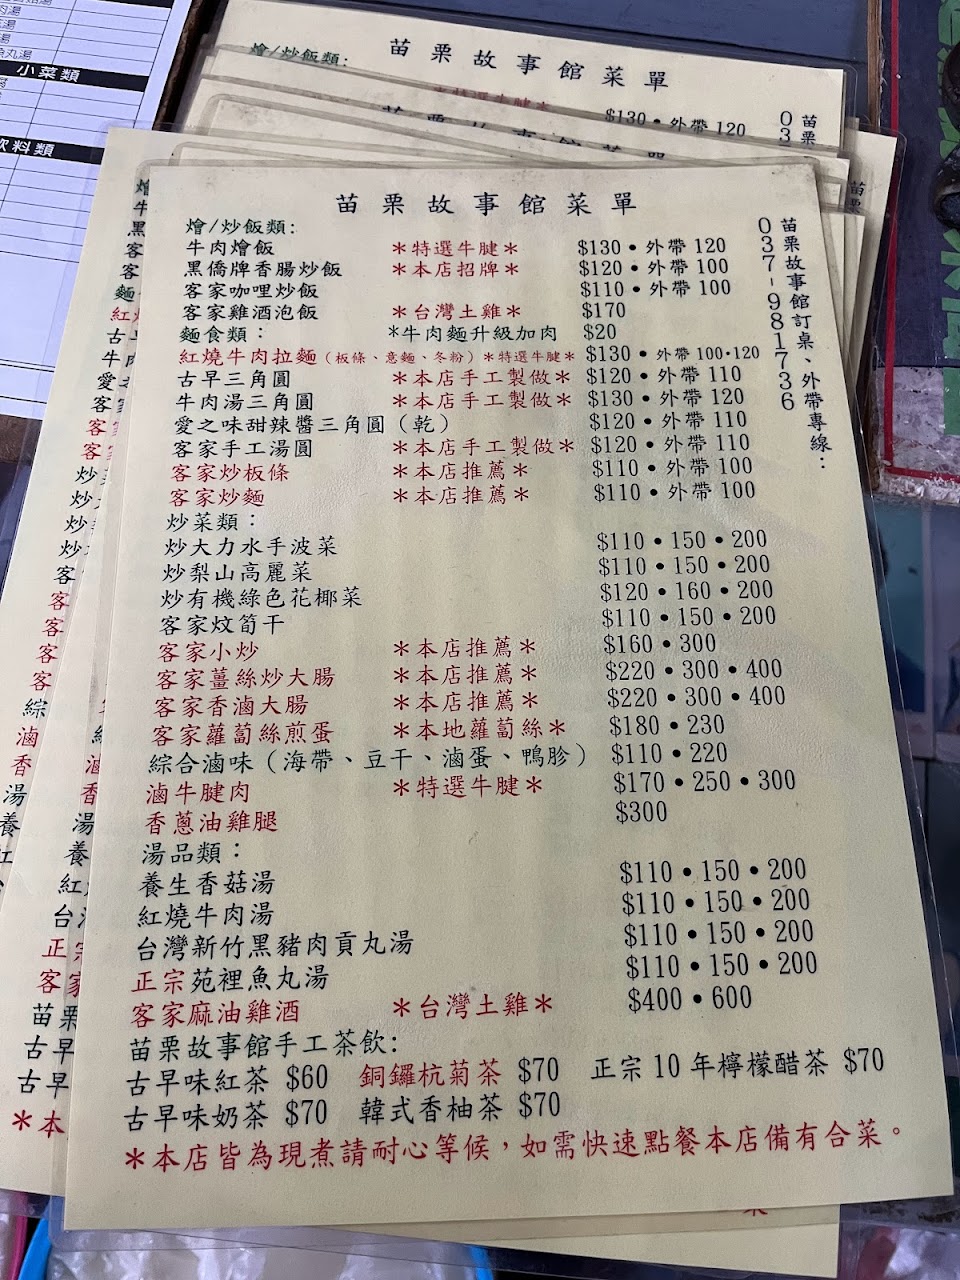 肉湯
湯
魚丸湯
小菜類
飲料類
燴/炒飯類:
苗栗故事館菜單
*特選牛腱*
$130•外帶120
苗栗
03
苗栗故事館菜單
苗栗故事館菜單
燴/炒飯類:
牛肉燴飯 *特選牛腱* $130•外帶120
黑僑牌香腸炒飯 *本店招牌* $120•外帶100
客家咖哩炒飯 $110•外帶100
客家雞酒泡飯 *台灣土雞* $170
麵食類: *牛肉麵升級加肉 $20
紅燒牛肉拉麵(板條、意麵、冬粉)*特選牛腱* $130•外帶100•120
古早三角圓 *本店手工製做* $120•外帶110
牛肉湯三角圓 *本店手工製做* $130•外帶120
愛之味甜辣醬三角圓(乾) $120•外帶110
客家手工湯圓 *本店手工製做* $120•外帶110
客家炒板條 *本店推薦* $110•外帶100
客家炒麵 *本店推薦* $110•外帶100
炒菜類:
炒大力水手波菜 $110•150•200
炒梨山高麗菜 $110•150•200
炒有機綠色花椰菜 $120•160•200
客家炆筍干 $110•150•200
客家小炒 *本店推薦* $160•300
客家薑絲炒大腸 *本店推薦* $220•300•400
客家香滷大腸 *本店推薦* $220•300•400
客家蘿蔔絲煎蛋 *本地蘿蔔絲* $180•230
綜合滷味(海帶、豆干、滷蛋、鴨胗) $110•220
滷牛腱肉 *特選牛腱* $170•250•300
香蔥油雞腿 $300
湯品類:
養生香菇湯 $110•150•200
紅燒牛肉湯 $110•150•200
台灣新竹黑豬肉貢丸湯 $110•150•200
正宗苑裡魚丸湯 $110•150•200
客家麻油雞酒 *台灣土雞* $400•600
苗栗故事館手工茶飲:
古早味紅茶 $60 銅鑼杭菊茶 $70 正宗10年檸檬醋茶 $70
古早味奶茶 $70 韓式香柚茶 $70
*本店皆為現煮請耐心等候,如需快速點餐本店備有合菜。
苗栗故事館訂桌、外帶專線:
037-981736